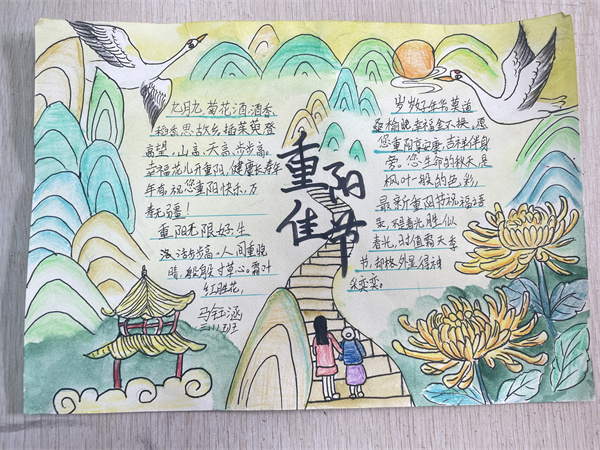 九月九菊花酒,酒香
稻香思故乡插茱萸登
高望,山高、天高、步步高。
幸福花儿开重阳,健康长寿年
年有祝您重阳快乐,万
寿无疆!
重阳无限好生
活洁步步高。人间重晚
晴,般般寸草心。霜叶
红胜花,
马钰涵
重阳
佳节
岁岁好年华莫道
桑榆晚幸福金不换。愿
您重阳享安康,吉祥伴身
旁。您生命的秋天,是
枫叶一般的色彩,
最新重阳节祝福
春光胜似
春光,时值霜天季
节,却格外显得神
采奕奕。